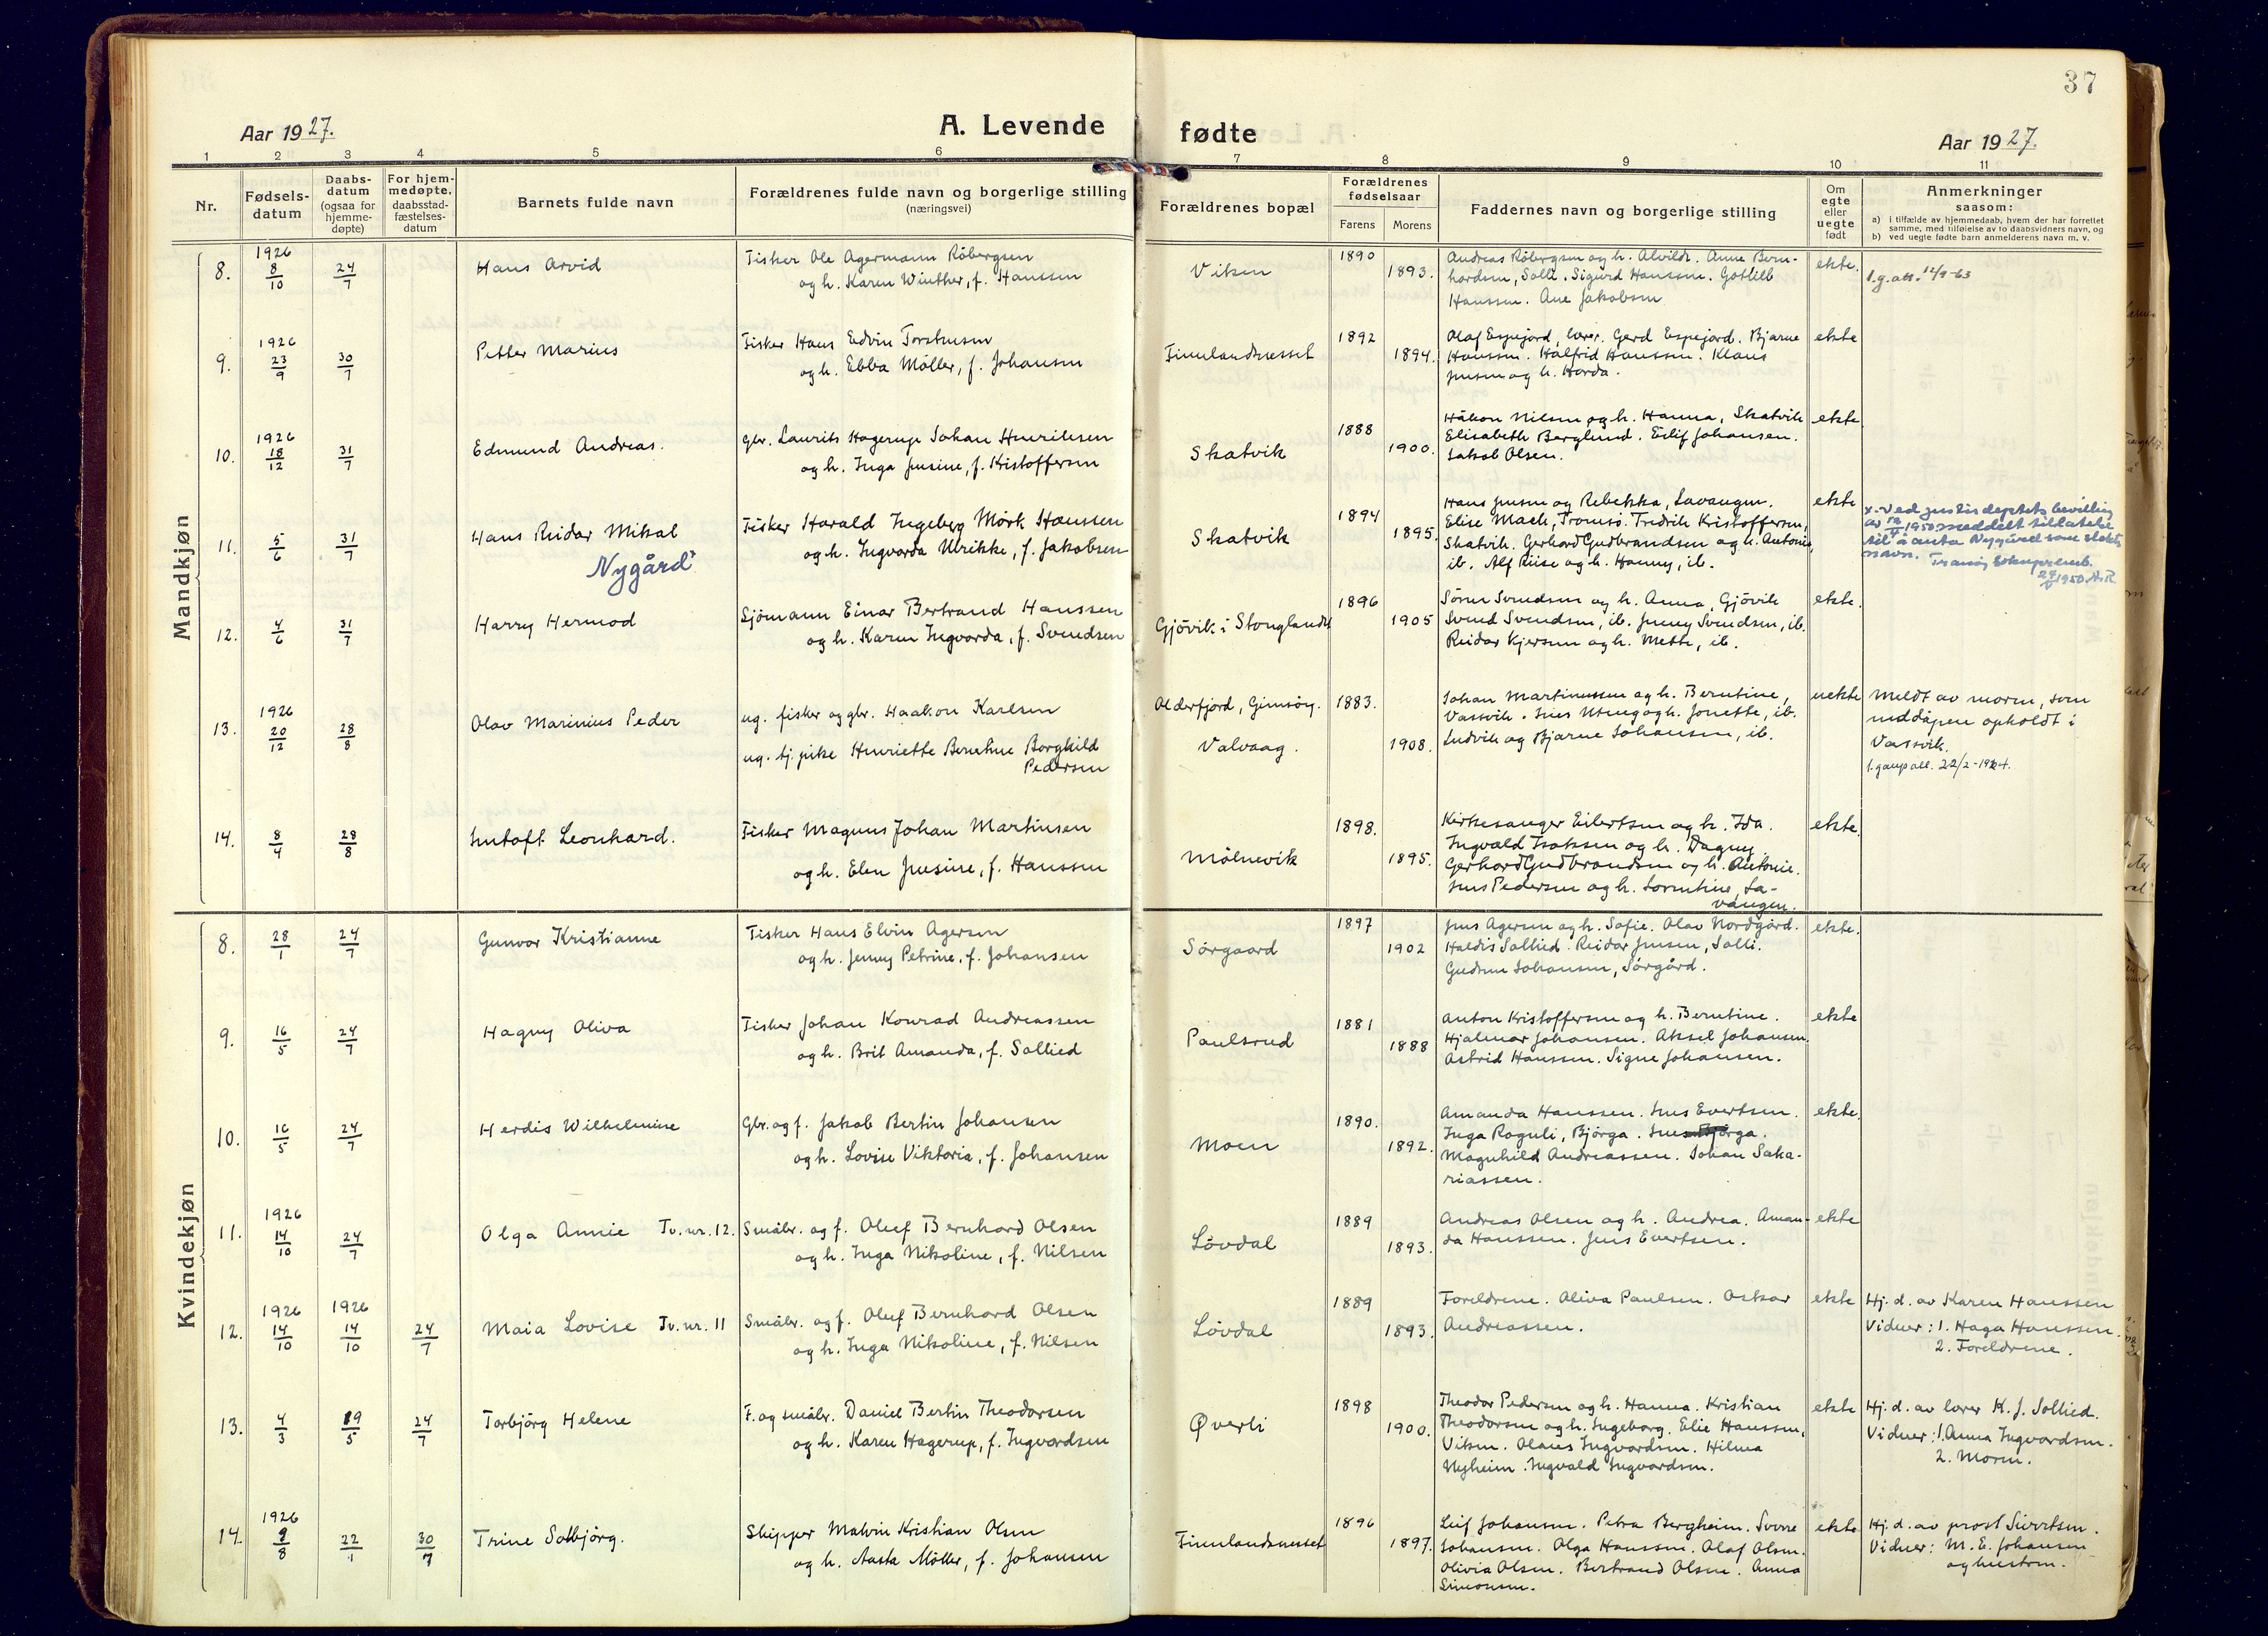 37
Aar 1927.
A. Levende fødte
Aar 1927.
1 2 3 4 5 6 7 8 9 10 11
Nr.
Fødsels-
datum
Daabs-
datum
(ogsaa for
hjemme-
døpte)
For hjem-
medøpte,
daabsstad-
fæstelses-
datum
Barnets fulde navn
Forældrenes fulde navn og borgerlige stilling
(næringsvei)
Forældrenes bopæl
Forældrenes
fødselsaar
Farens Morens
Faddernes navn og borgerlige stilling
Om
egte
eller
uegte
født
Anmerkninger
saasom:
a) i tilfælde av hjemmedaab, hvem der har forrettet
samme, med tilføielse av to daabsvidners navn, og
b) ved uegte fødte barn anmelderens navn m. v.
Mandkjøn
8.
1926
8/10
24/7
Hans Arvid
Fisker Ole Agermann Röbergsen
og h. Karen Winther, f. Hanssen
Viken
1890
1893.
Andreas Röbergsen og h. Alvilde. Anne Bern-
hardsen, Solli. Sigurd Hanssen. Gotlieb
Hanssen. Ane Jakobsen
ekte.
l.g.att. 12/9-63
9.
1926
23/9
30/7
Petter Marius
Fisker Hans Edvin Torstensen
og h. Ebba Möller, f. Johansen
Finnlandnesset
1892
1894.
Olaf Espejord, lærer. Gerd Espejord. Bjarne
Hanssen. Halfrid Hanssen. Klaus
Jensen og h. Horda.
ekte
10.
1926
18/12
31/7
Edmund Andreas.
Gbr. Laurits Hagerup Johan Henriksen
og h. Inga Jensine, f. Kristoffersen
Skatvik
1888
1900.
Håkon Nilsen og h. Hanna, Skatvik
Elisabeth Berglund. Eilif Johansen.
Jakob Olsen.
ekte
11.
5/6
31/7
Hans Reidar Mikal
Nygård x
Fisker Harald Ingeberg Mörk Hanssen
og h. Ingvarda Ulrikke, f. Jakobsen
Skatvik
1894
1895.
Hans Jensen og Rebekka, Lavangen.
Elise Mack, Tromsö. Fredrik Kristoffersen,
Skatvik. Gerhard Gudbrandsen og h. Antonie,
ib. Alf Riise og h. Hanny, ib.
ekte
x. Ved justisdeptets bevilling
av 1950 meddelt tillatelse
til å anta Nygård som slekts
navn. Tranöy Sokneprestemb.
1950. A. R.
12.
4/6
31/7
Harry Hermod
Sjömann Einar Bertrand Hanssen
og h. Karen Ingvarda, f. Svendsen
Gjövik i Stonglandet
1896
1905
Sören Svendsen og h. Anna, Gjövik
Svend Svendsen, ib. Jenny Svendsen, ib.
Reidar Kjersen og h. Mette, ib.
ekte.
13.
1926
20/12
28/8
Olav Marinius Peder
ug. fisker og gbr. Haakon Karlsen
ug. tj. pike Henriette Berntine Borghild
Pedersen
Alderfjord, Gimsöy.
Valvaag.
1883.
1908.
Johan Martinussen og h. Berntine,
Vassvik. Jens Uteng og h. Jonette, ib.
Ludvik og Bjarne Johansen, ib.
uekte
Meldt av moren, som
ved dåpen opholdt i
Vassvik.
l. gaup all. 22/2-1924.
14.
8/4
28/8
Intoft Leonhard.
Fisker Magnus Johan Martinsen
og h. Elen Jensine, f. Hanssen
Mölnevik
1898.
1895.
Kirkesanger Eilertsen og h. Ida.
Ingvald Isaksen og h. Dagny.
Gerhard Gudbrandsen og h. Antonie.
Jens Pedersen og h. Lorentine, La-
vangen.
ekte.
Kvindekjøn
8.
28/1
24/7
Gunvor Kristianne
Fisker Hans Elvin Agersen
og h. Jenny Petrine, f. Johansen
Sörgaard
1897
1902
Jens Agersen og h. Sofie. Olav Nordgård.
Haldis Sollied. Reidar Jensen, Solli.
Gudrun Johansen, Sörgård.
ekte.
9.
16/5
24/7
Hagny Oliva
Fisker Johan Konrad Andreassen
og h. Brit Amanda, f. Sollied
Paulsrud
1881
1888
Anton Kristoffersen og h. Berntine.
Hjalmar Johansen. Aksel Johansen.
Astrid Hanssen. Signe Johansen.
ekte
10.
16/5
24/7
Herdis Wilhelmine
Gbr. og f. Jakob Bertin Johansen
og h. Lovise Viktoria, f. Johansen
Moen
1890.
1892.
Amanda Hanssen. Jens Evertsen.
Inga Roguli, Björga.
Magnhild Andreassen. Johan Saka-
riassen.
ekte.
11.
1926
14/10
24/7
Olga Annie Tv. nr. 12.
Småbr. og f. Oluf Bernhard Olsen
og h. Inga Nikoline, f. Nilsen
Lövdal
1889
1893.
Andreas Olsen og h. Andrea. Aman-
da Hanssen. Jens Evertsen.
ekte
12.
1926
14/10
1926
14/10
24/7
Maia Lovise Tv. nr. 11
Småbr. og f. Oluf Bernhard Olsen
og h. Inga Nikoline, f. Nilsen
Lövdal
1889
1893.
Foreldrene. Oliva Paulsen. Oskar
Andreassen.
ekte
Hj. d. av Karen Hanssen
Vidner: 1. Haga Hanssen.
2. Foreldrene.
13.
4/3
19/5
24/7
Torbjörg Helene
F. og småbr. Daniel Bertin Theodorsen
og h. Karen Hagerup, f. Ingvardsen
Överli
1898
1900.
Theodor Pedersen og h. Hanna. Kristian
Theodorsen og h. Ingeborg. Elie Hanssen,
Viken. Olaus Ingvardsen. Hilma
Nyheim. Ingvald Ingvardsen.
ekte
Hj. d. av lærer K. J. Sollied.
Vidner: 1. Anna Ingvardsen.
2. Moren.
14.
1926
9/8
22/1
30/7
Trine Solbjörg.
Skipper Malvin Kristian Olsen
og h. Aasta Möller, f. Johansen
Finnlandsnesset
1896
1897.
Leif Johansen. Petra Bergheim. Sverre
Johansen. Olga Hanssen. Olaf Olsen.
Olivia Olsen. Bertrand Olsen. Anna
Simonsen.
ekte
Hj. d. av prost Sivertsen.
Vidner: M. E. Johansen
og hustru.